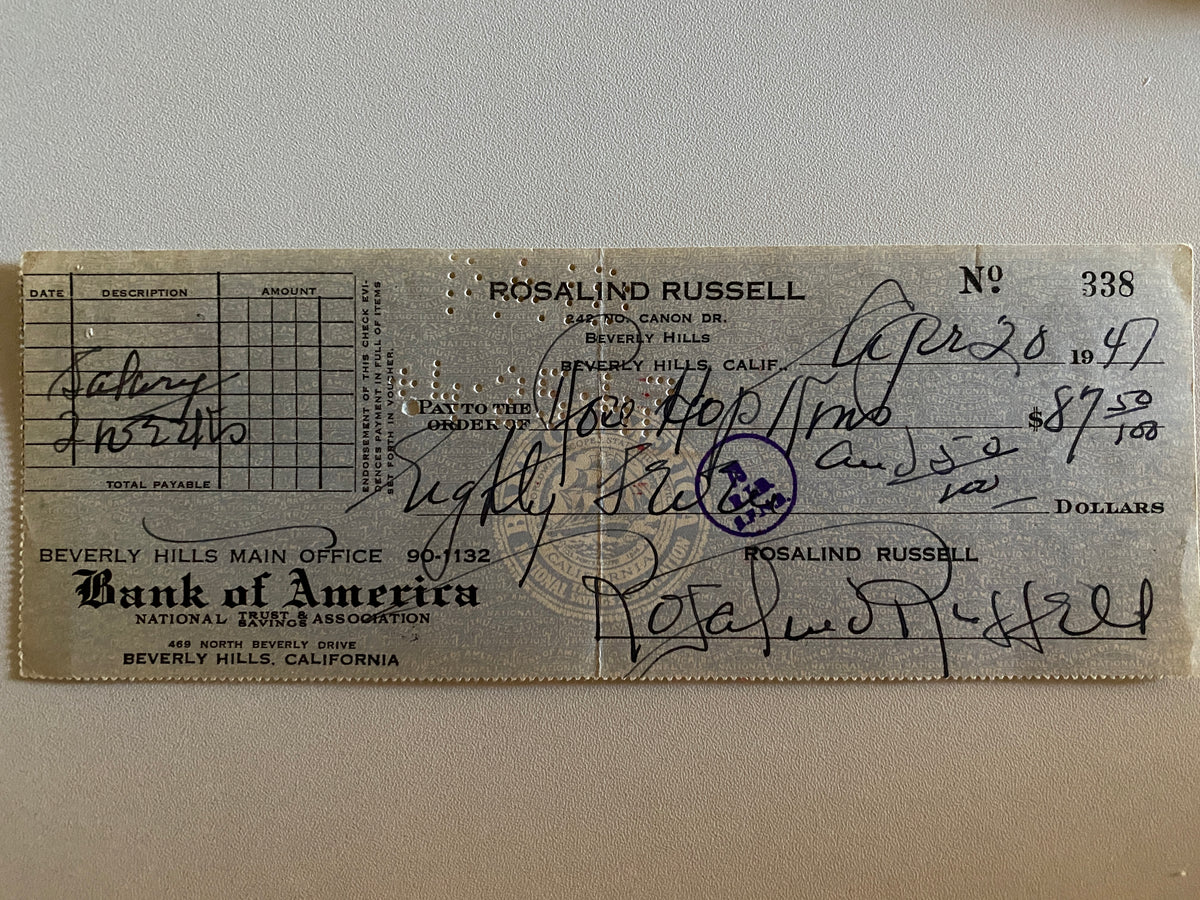 DATE DESCRIPTION AMOUNT
Salary
2 weeks
TOTAL PAYABLE
ENDORSEMENT OF THIS CHECK EVI-
DENCES PAYMENT IN FULL OF ITEMS
SET FORTH IN VOUCHER.
ROSALIND RUSSELL
242 NO. CANON DR.
BEVERLY HILLS
Nº 338
BEVERLY HILLS, CALIF., Apr 28 1947
PAY TO THE
ORDER OF Hopkins $87 50/100
Eighty Seven and 50/100 DOLLARS
BEVERLY HILLS MAIN OFFICE 90-1132
Bank of America
NATIONAL TRUST & SAVINGS ASSOCIATION
469 NORTH BEVERLY DRIVE
BEVERLY HILLS, CALIFORNIA
ROSALIND RUSSELL
Rosalind Russell